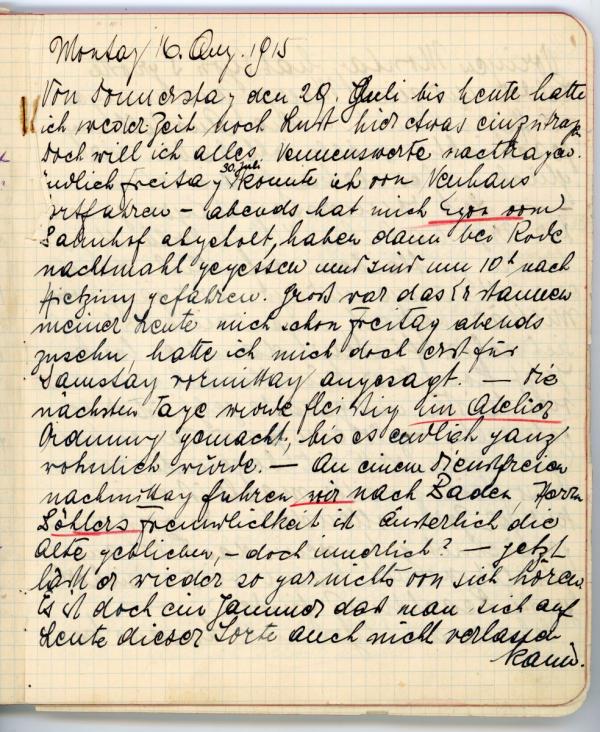 Montag 16. Aug. 1915
Von Donnerstag den 29. Juli bis heute hatte
ich weder Zeit noch Lust hier etwas einzutrag.
Doch will ich alles Nennenswerte nachtragen.
Endlich Freitag 30. Juli konnte ich von Neuhaus
fortfahren – abends hat mich Egon vom
Bahnhof abgeholt, haben dann bei Rode
nachtmahl gegessen und sind um 10h nach
Hietzing gefahren. Groß war das Erstaunen
meiner Leute mich schon Freitag abends
zusehn, hatte ich mich doch erst für
Samstag vormittag angesagt. — Die
nächsten Tage wurde fleißig im Atelier
Ordnung gemacht, bis es endlich ganz
wohnlich wurde. — An einem dienstfreien
nachmittag fuhren wir nach Baden, Herrn
Söhlers Freundlichkeit ist äusserlich die
alte geblieben, – doch innerlich? — jetzt
läßt er wieder so gar nichts von sich hören.
Es ist doch ein Jammer daß man sich auf
Leute dieser Sorte auch nicht verlassen
kann.